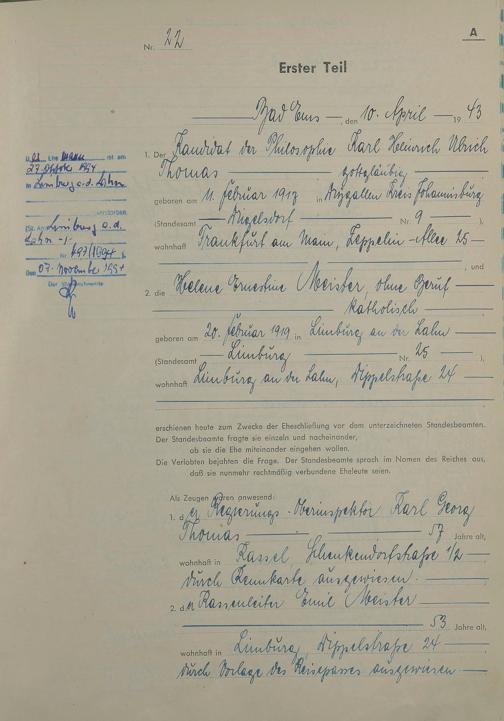 A
Nr. 22
Erster Teil
Bad Ems, den 10. April 1943
1. Der Kandidat der Philosophie Karl Heinrich Ulrich
Thomas gottgläubig
geboren am 11. Februar 1917 in Kreis Johannisburg
(Standesamt Nr. 9),
wohnhaft Frankfurt am Main, Zeppelin-Allee 25
, und
2. die Helene Ernestine Meister, ohne Beruf
katholisch
geboren am 20. Februar 1919 in Limburg an der Lahn
(Standesamt Limburg Nr. 25),
wohnhaft Limburg an der Lahn, Dippelstraße 24
erschienen heute zum Zwecke der Eheschließung vor dem unterzeichneten Standesbeamten.
Der Standesbeamte fragte sie einzeln und nacheinander,
ob sie die Ehe miteinander eingehen wollen.
Die Verlobten bejahten die Frage. Der Standesbeamte sprach im Namen des Reiches aus,
daß sie nunmehr rechtmäßig verbundene Eheleute seien.
Als Zeugen waren anwesend:
1. der Regierungs-Oberinspektor Karl Georg
Thomas 57 Jahre alt,
wohnhaft in Kassel, Schenkendorfstraße 1/2
durch Kennkarte ausgewiesen.
2. der Kassenleiter Emil Meister
53 Jahre alt,
wohnhaft in Limburg, Dippelstraße 24
durch Vorlage des Reisepasses ausgewiesen
Ehemann ist am
27. Oktober 1994
in Limburg a.d. Lahn
verstorben
(St.Amt Limburg a.d.
Lahn -
Nr. 497/1994)
Den 07. November 1994
Der Standesbeamte